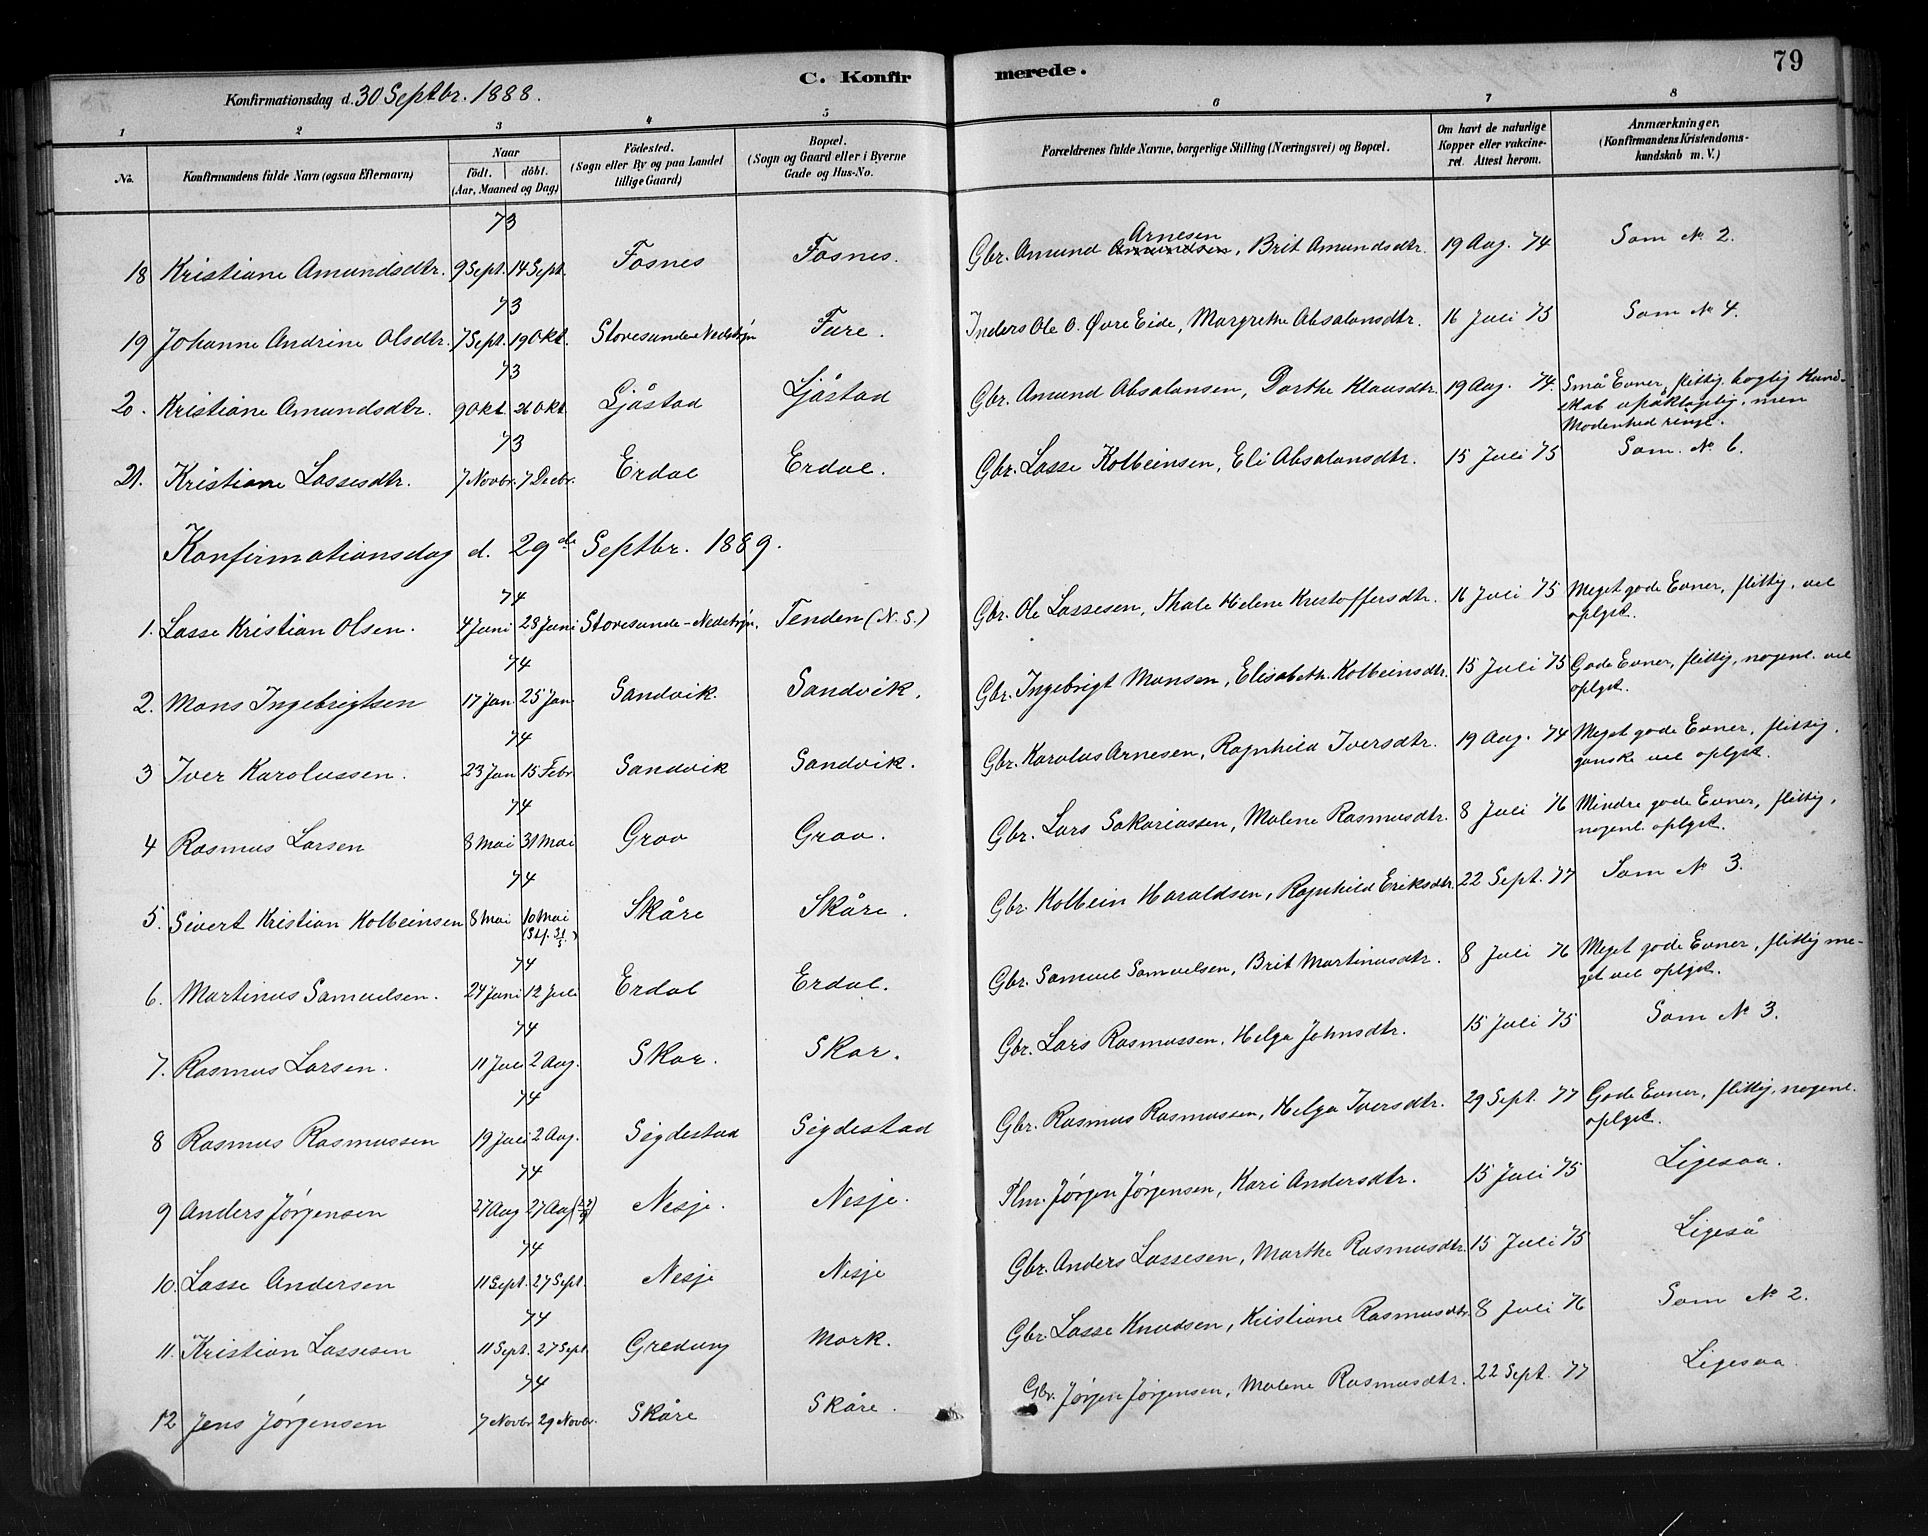 79
C. Konfir merede.
Konfirmationsdag d. 30 Septbr. 1888.
1 2 3 4 5 6 7 8
No. Konfirmandens fulde Navn (ogsaa Efternavn) Naar födt. döbt. (Aar, Maaned og Dag) Födested. (Sogn eller By og paa Landet tillige Gaard) Bopæl. (Sogn og Gaard eller i Byerne Gade og Hus-No. Forældrenes fulde Navne, borgerlige Stilling (Næringsvei) og Bopæl. Om havt de naturlige Kopper eller vakcineret. Attest herom. Anmærkninger. (Konfirmandens Kristendomskundskab m. V.)
73
Arnesen
18 Kristiane Amundsdtr. 9 Sept. 14 Sept. Fosnes Fosnes. Gbr. Amund Amundsen, Brit Amundsdtr. 19 Aug. 74 Som No 2.
73
19 Johanne Andrine Olsdtr. 7 Sept. 19 Okt. Storesunde Nedstryn Fure. Inders Ole O. Øvre Eide, Margrethe Absalonsdtr. 16 Juli 75 Som No 4.
73
20. Kristiane Amundsdtr. 9 Okt 26 Okt Ljåstad Ljåstad Gbr. Amund Absalonsen, Dorthe Klausdtr. 19 Aug. 74. Små Evner, flittig, boglig Kund-
skab upåklagelig, men
Modenhed ringe.
73
21. Kristiane Lassesdtr. 7 Novbr. 7 Decbr. Erdal Erdal. Gbr. Lasse Kolbeinsen, Eli Absalonsdtr. 15 Juli 75 Som No 6.
Konfirmationsdag d. 29de Septbr. 1889.
74
1. Lasse Kristian Olsen. 4 Juni 28 Juni Storesunde-Nedstryn. Tenden (N. S.) Gbr. Ole Lassesen, Thale Helene Kristoffersdtr. 16 Juli 75 Meget gode Evner, flittig, vel
oplyst.
74
2. Mons Ingebrigtsen 17 Jan. 25 Jan. Sandvik Sandvik. Gbr. Ingebrigt Monsen, Elisabeth Kolbeinsdtr. 15 Juli 75 Gode Evner, flittig, nogenl. vel
oplyst.
74
3 Iver Karolussen. 23 Jan 15 Febr Sandvik Sandvik. Gbr. Karolus Arnesen, Ragnhild Iversdtr. 19 Aug. 74 Meget gode Evner, flittig,
ganske vel oplyst.
74
4 Rasmus Larsen 8 Mai 31 Mai Grov Grov. Gbr. Lars Sakariassen, Malene Rasmusdtr. 8 Juli 76 Mindre gode Evner, flittig,
nogenl. oplyst.
74
5. Sivert Kristian Kolbeinsen 8 Mai 10 Mai (St f. 31/5.) Skåre Skåre. Gbr. Kolbein Haraldsen, Ragnhild Eriksdtr. 22 Sept. 77 Som No 3.
74
6. Martinus Samuelsen. 24 Juni 12 Juli Erdal Erdal. Gbr. Samuel Samuelsen, Brit Martinusdtr. 8 Juli 76 Meget gode Evner, flittig, me-
get vel oplyst.
74
7. Rasmus Larsen. 11 Juli 2 Aug. Skor. Skor. Gbr. Lars Rasmussen, Helga Johnsdtr. 15 Juli 75 Som No 3.
74
8 Rasmus Rasmussen 19 Juli 2 Aug. Sigdestad Sigdestad Gbr. Rasmus Rasmussen, Helga Iversdtr. 29 Sept. 77 Gode Evner, flittig, nogenl.
oplyst.
74
9 Anders Jørgensen 27 Aug 27 Aug Nesje. Nesje. Plm. Jørgen Jørgensen, Kari Andersdtr. 15 Juli 75 Ligesaa.
74
10. Lasse Andersen 11 Sept. 27 Sept. Nesje Nesje Gbr. Anders Lassesen, Marthe Rasmusdtr. 15 Juli 75 Ligeså
74
11. Kristian Lassesen 11 Sept. 27 Sept Gredung Mork. Gbr. Lasse Knudsen, Kristiane Rasmusdtr. 8 Juli 76 Som No 2.
74
12 Jens Jørgensen 7 Novbr. 29 Novbr. Skåre Skåre. Gbr. Jørgen Jørgensen, Malene Rasmusdtr. 22 Sept. 77 Ligesaa.